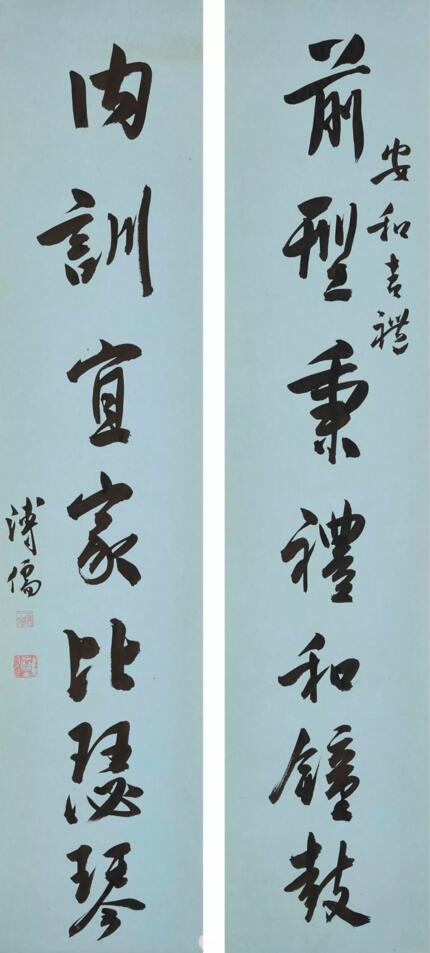 前型秉禮和鐘鼓
安和吉禮
內訓宜家比瑟琴
溥儒